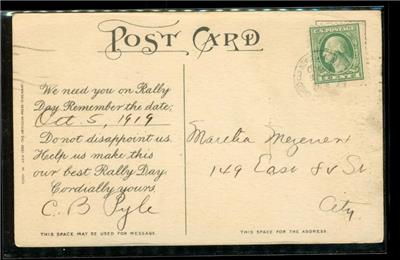 POST CARD
U.S. POSTAGE
1 CENT 1
We need you on Rally
Day. Remember the date,
Oct. 5, 1919
Do not disappoint us.
Help us make this
our best Rally Day.
Cordially yours,
C B Pyle
Martha
149 East 84 St
City.
THIS SPACE MAY BE USED FOR MESSAGE.
THIS SPACE IS FOR THE ADDRESS.